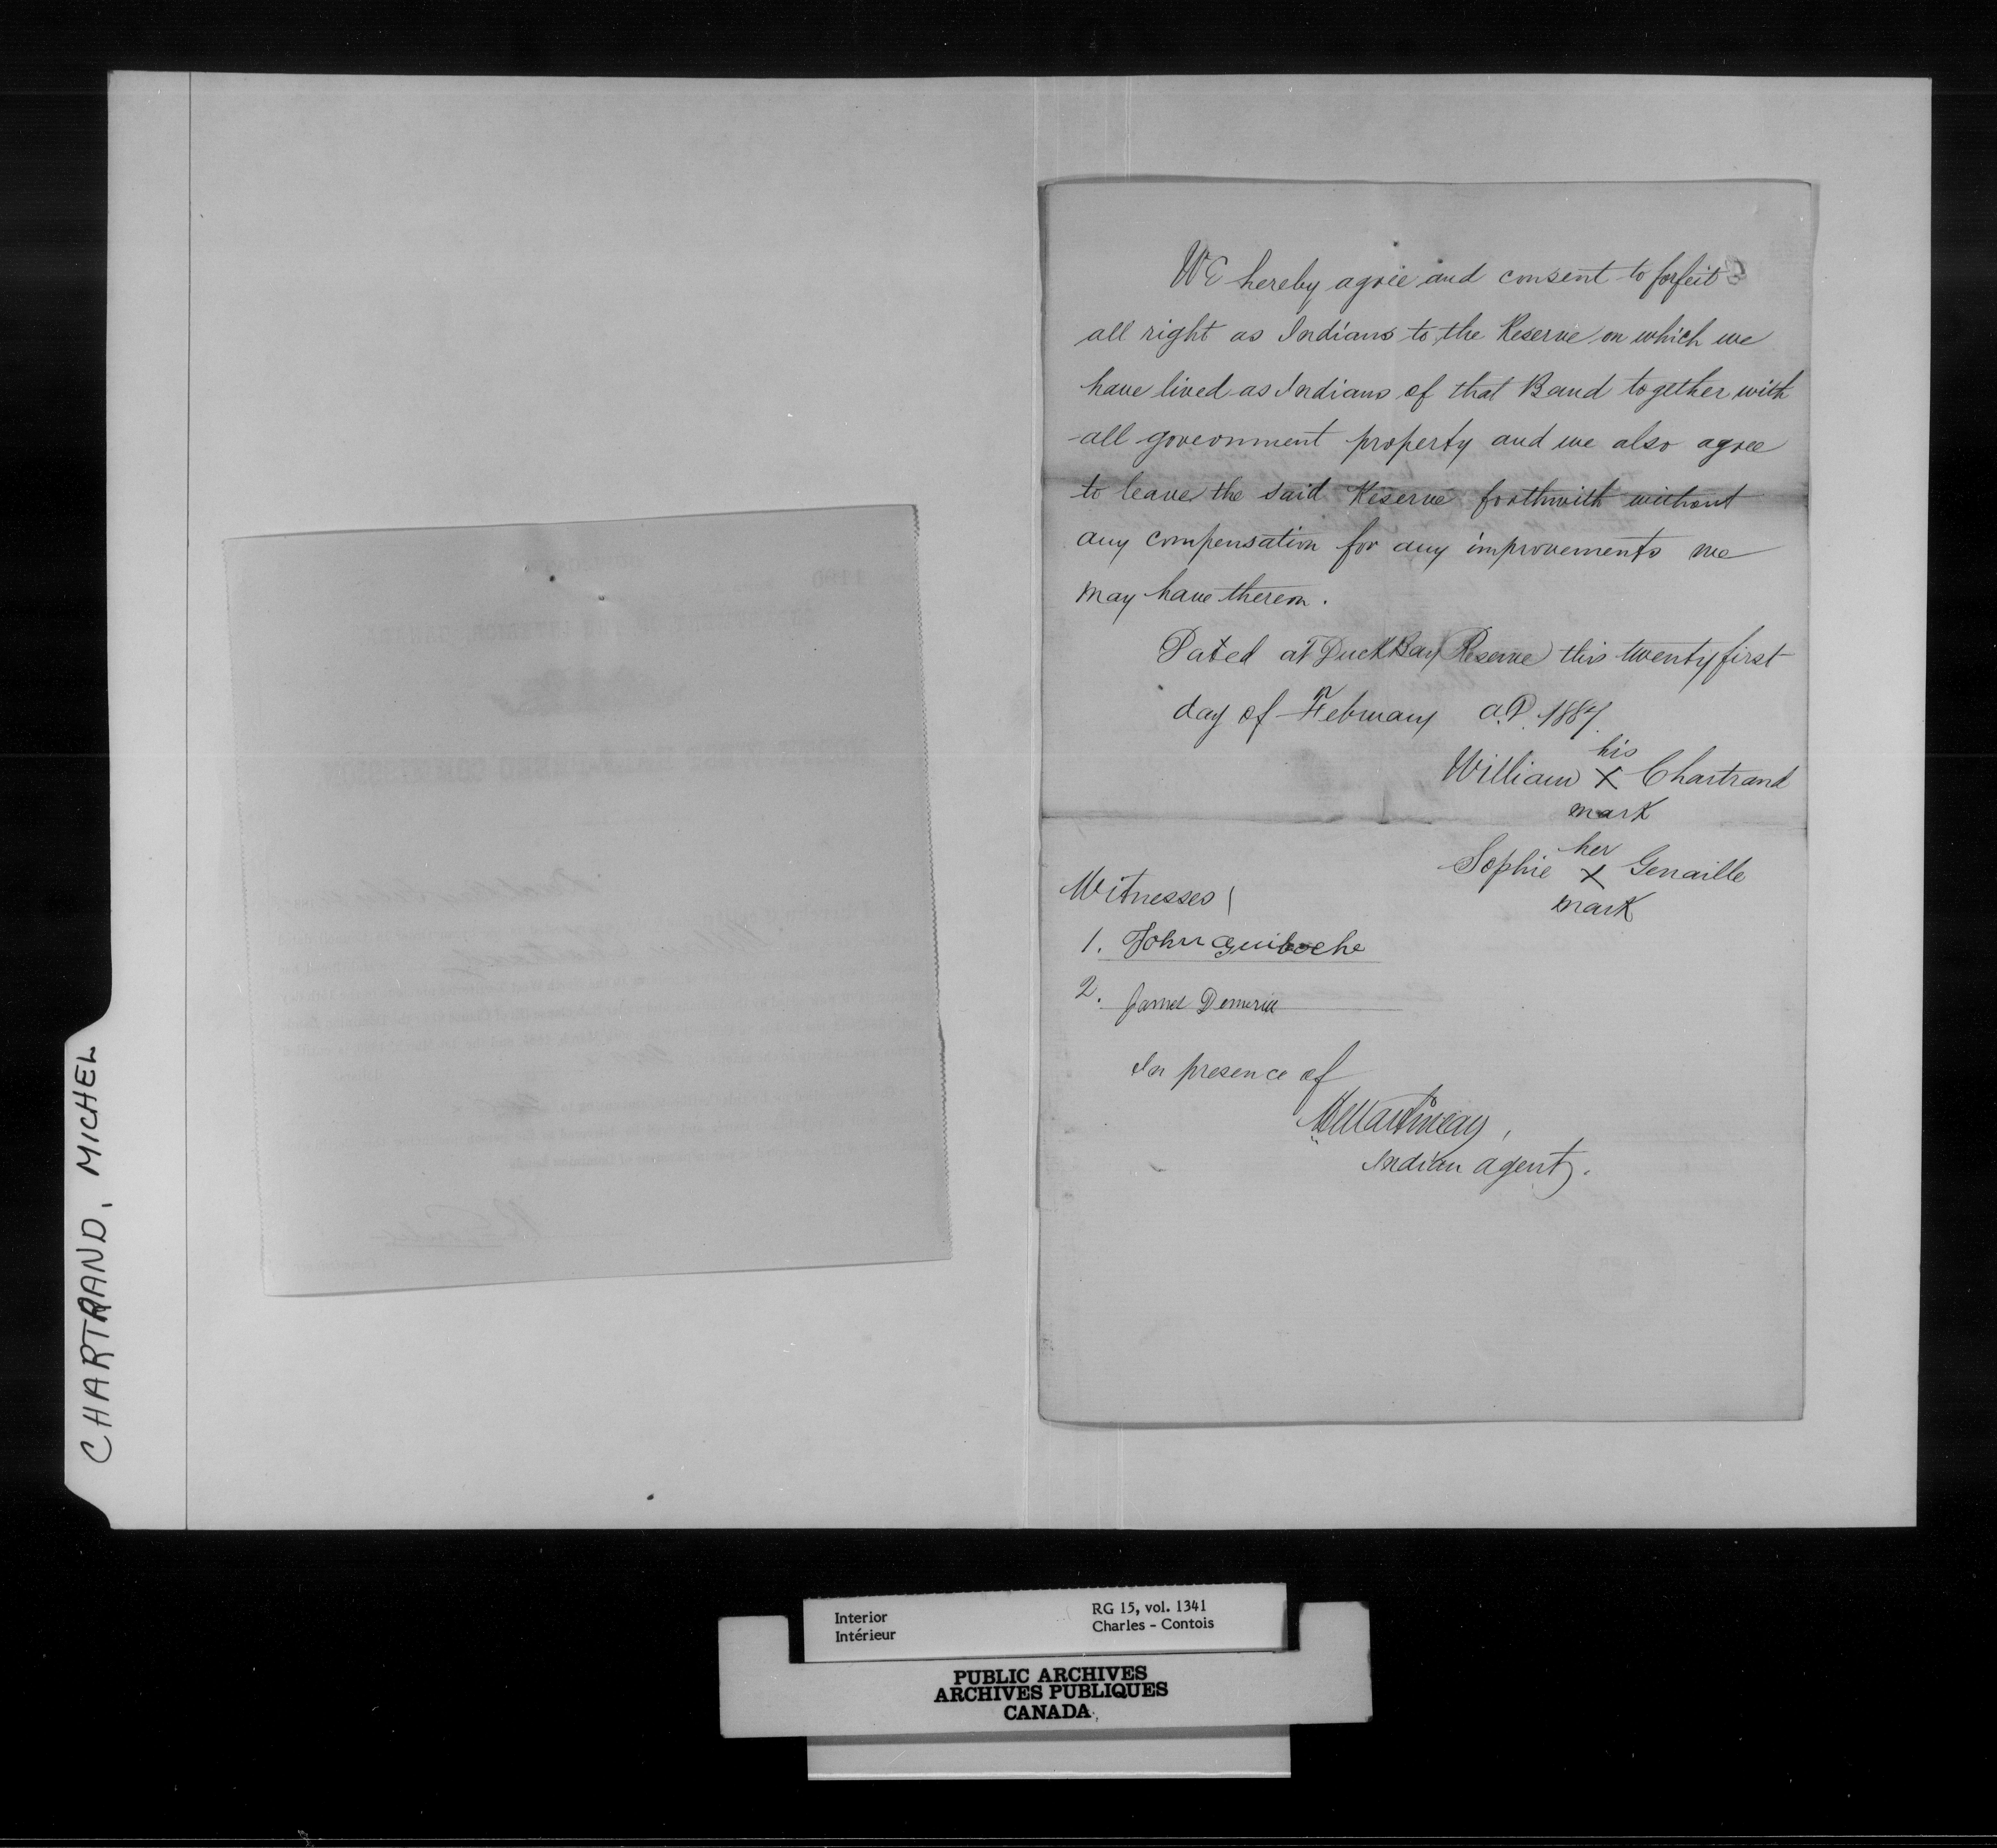 CHARTRAND, MICHEL
We hereby agree and consent to forfeit
all right as Indians to the Reserve on which we
have lived as Indians of that Band together with
all government property and we also agree
to leave the said Reserve forthwith without
any compensation for any improvements we
may have thereon.
Dated at Duck Bay Reserve this twenty first
day of February A.D. 1887.
his
William X Chartrand
mark
her
Sophie X Genaille
mark
Witnesses
1. John Guiboche
2. James
In presence of
Martineau,
Indian agent.
Interior
Intérieur
RG 15, vol. 1341
Charles - Contois
PUBLIC ARCHIVES
ARCHIVES PUBLIQUES
CANADA